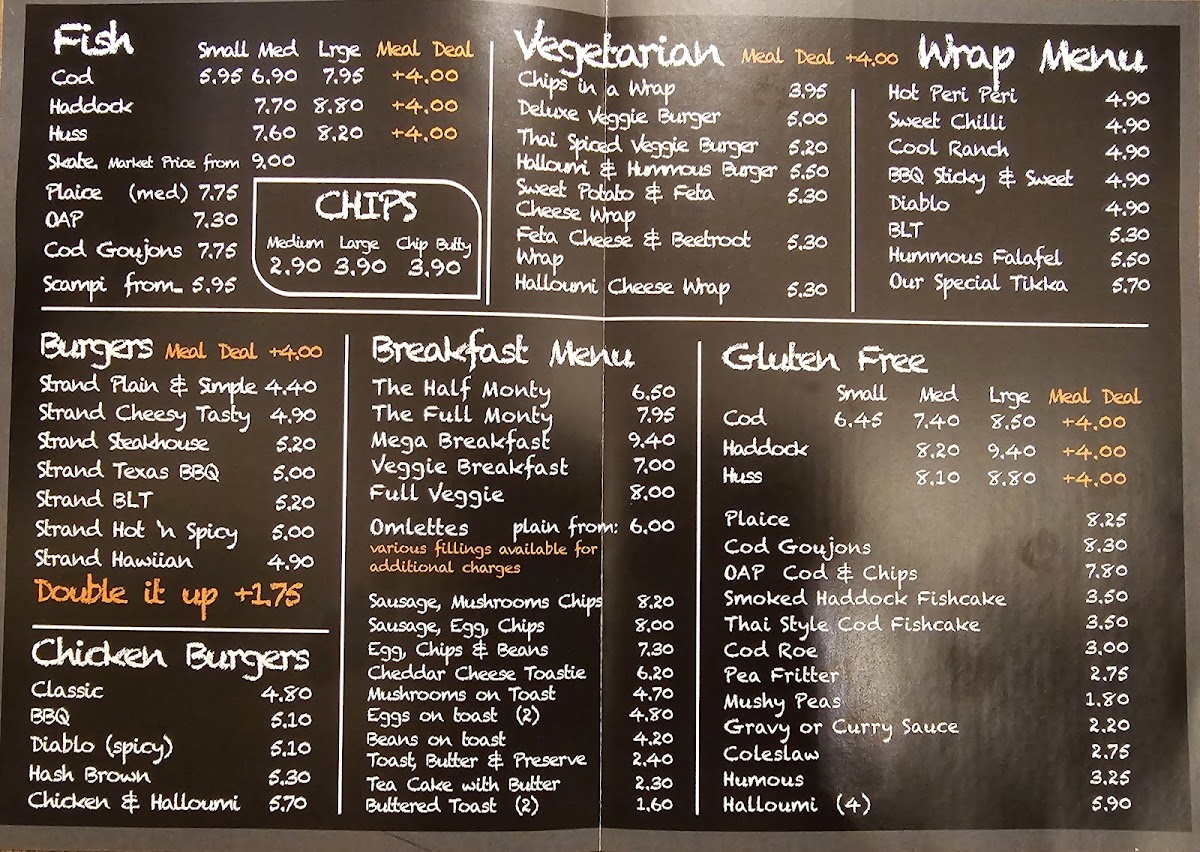 Fish
Small Med Lrge Meal Deal
Cod 5.95 6.90 7.95 +4.00
Haddock 7.70 8.80 +4.00
Huss 7.60 8.20 +4.00
Skate Market Price from 9.00
Plaice (med) 7.75
OAP 7.30
Cod Goujons 7.75
Scampi from... 5.95
CHIPS
Medium Large Chip Butty
2.90 3.90 3.90
Vegetarian Meal Deal +4.00
Chips in a Wrap 3.95
Deluxe Veggie Burger 5.00
Thai Spiced Veggie Burger 5.20
Halloumi & Hummous Burger 5.50
Sweet Potato & Feta 5.30
Cheese Wrap
Feta Cheese & Beetroot 5.30
Wrap
Halloumi Cheese Wrap 5.30
Wrap Menu
Hot Peri Peri 4.90
Sweet Chilli 4.90
Cool Ranch 4.90
BBQ Sticky & Sweet 4.90
Diablo 4.90
BLT 5.30
Hummous Falafel 5.50
Our Special Tikka 5.70
Burgers Meal Deal +4.00
Strand Plain & Simple 4.40
Strand Cheesy Tasty 4.90
Strand Steakhouse 5.20
Strand Texas BBQ 5.00
Strand BLT 5.20
Strand Hot 'n Spicy 5.00
Strand Hawiian 4.90
Double it up +1.75
Chicken Burgers
Classic 4.80
BBQ 5.10
Diablo (spicy) 5.10
Hash Brown 5.30
Chicken & Halloumi 5.70
Breakfast Menu
The Half Monty 6.50
The Full Monty 7.95
Mega Breakfast 9.40
Veggie Breakfast 7.00
Full Veggie 8.00
Omlettes plain from: 6.00
various fillings available for
additional charges
Sausage, Mushrooms Chips 8.20
Sausage, Egg, Chips 8.00
Egg, Chips & Beans 7.30
Cheddar Cheese Toastie 6.20
Mushrooms on Toast 4.70
Eggs on toast (2) 4.80
Beans on toast 4.20
Toast, Butter & Preserve 2.40
Tea Cake with Butter 2.30
Buttered Toast (2) 1.60
Gluten Free
Small Med Lrge Meal Deal
Cod 6.45 7.40 8.50 +4.00
Haddock 8.20 9.40 +4.00
Huss 8.10 8.80 +4.00
Plaice 8.25
Cod Goujons 8.30
OAP Cod & Chips 7.80
Smoked Haddock Fishcake 3.50
Thai Style Cod Fishcake 3.50
Cod Roe 3.00
Pea Fritter 2.75
Mushy Peas 1.80
Gravy or Curry Sauce 2.20
Coleslaw 2.75
Humous 3.25
Halloumi (4) 5.90